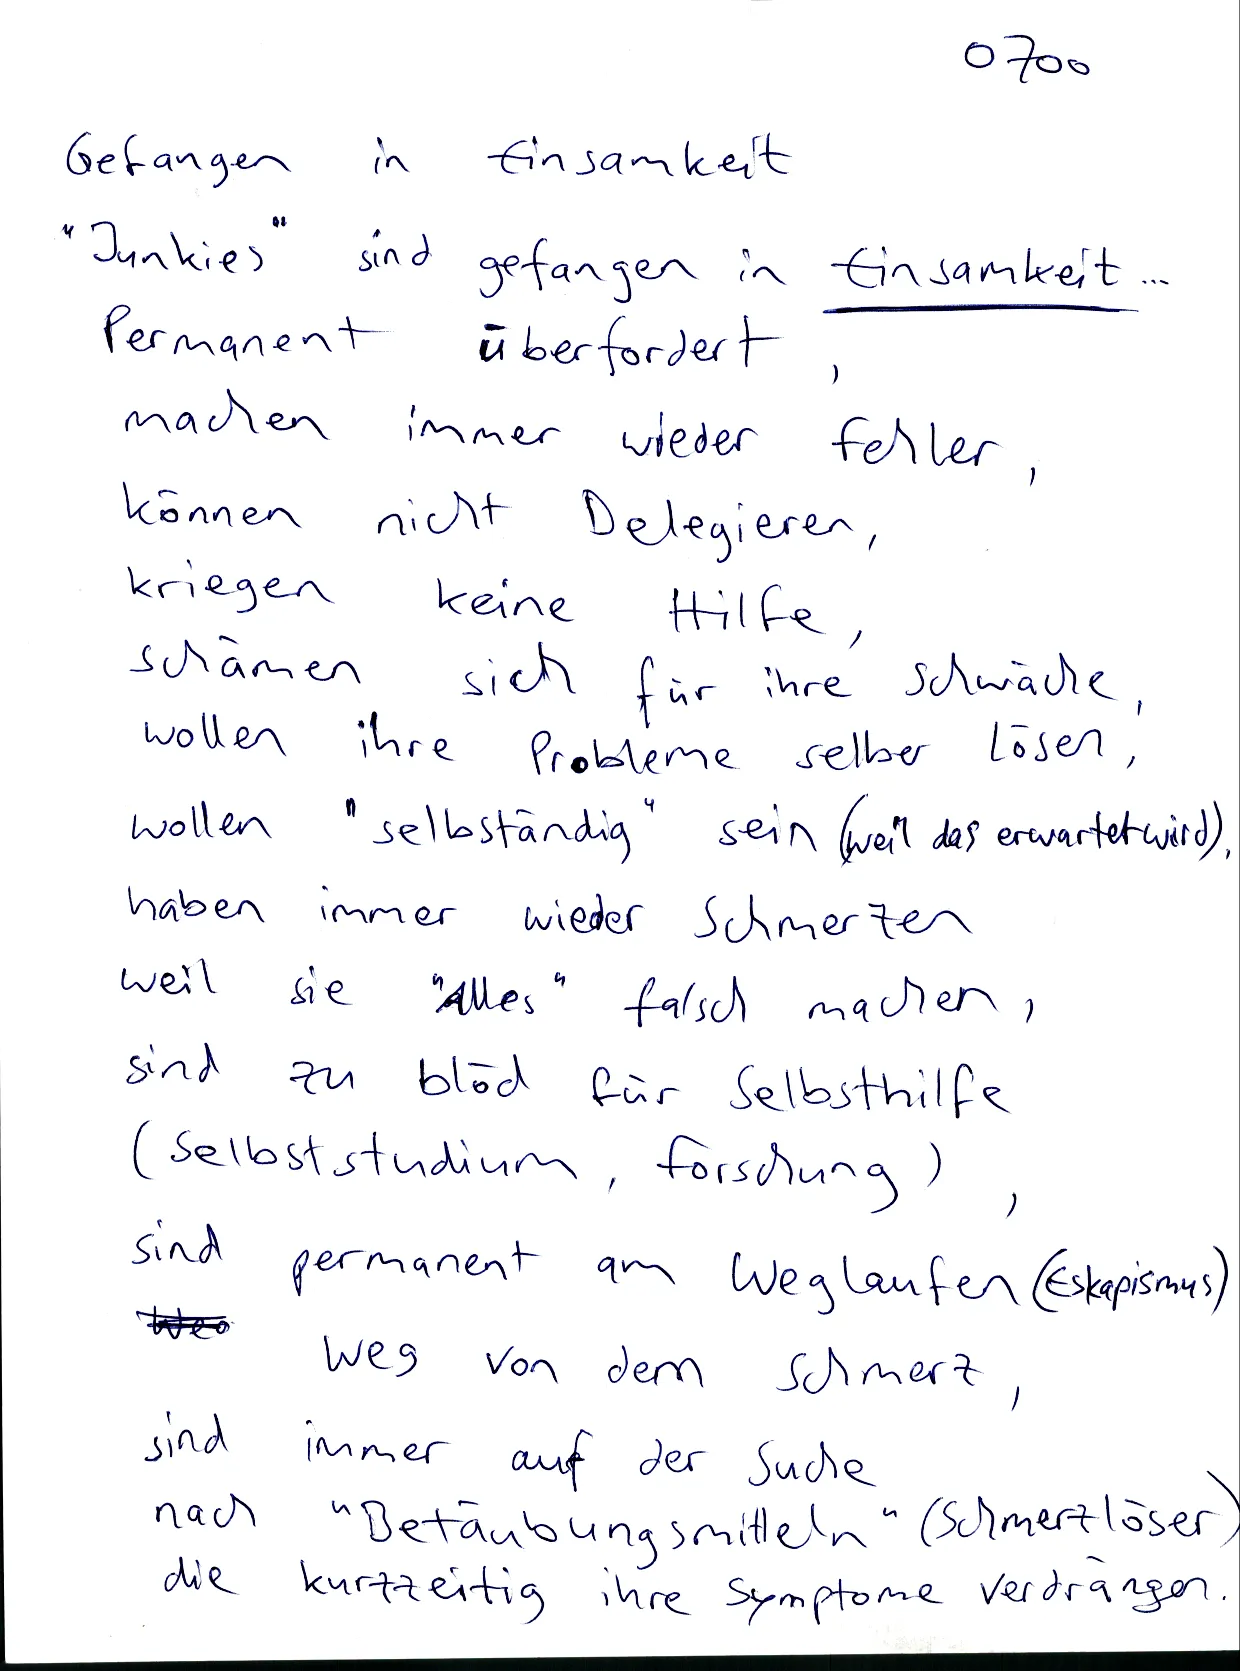 0700
Gefangen in Einsamkeit
"Junkies" sind gefangen in Einsamkeit...
Permanent überfordert,
machen immer wieder Fehler,
können nicht Delegieren,
kriegen keine Hilfe,
schämen sich für ihre Schwäche,
wollen ihre Probleme selber lösen,
wollen "selbständig" sein (weil das erwartet wird),
haben immer wieder Schmerzen
weil sie "Alles" falsch machen,
sind zu blöd für Selbsthilfe
(Selbststudium, Forschung),
sind permanent am Weglaufen (Eskapismus)
Weg von dem Schmerz,
sind immer auf der Suche
nach "Betäubungsmitteln" (Schmerzlöser)
die kurzzeitig ihre Symptome verdrängen.